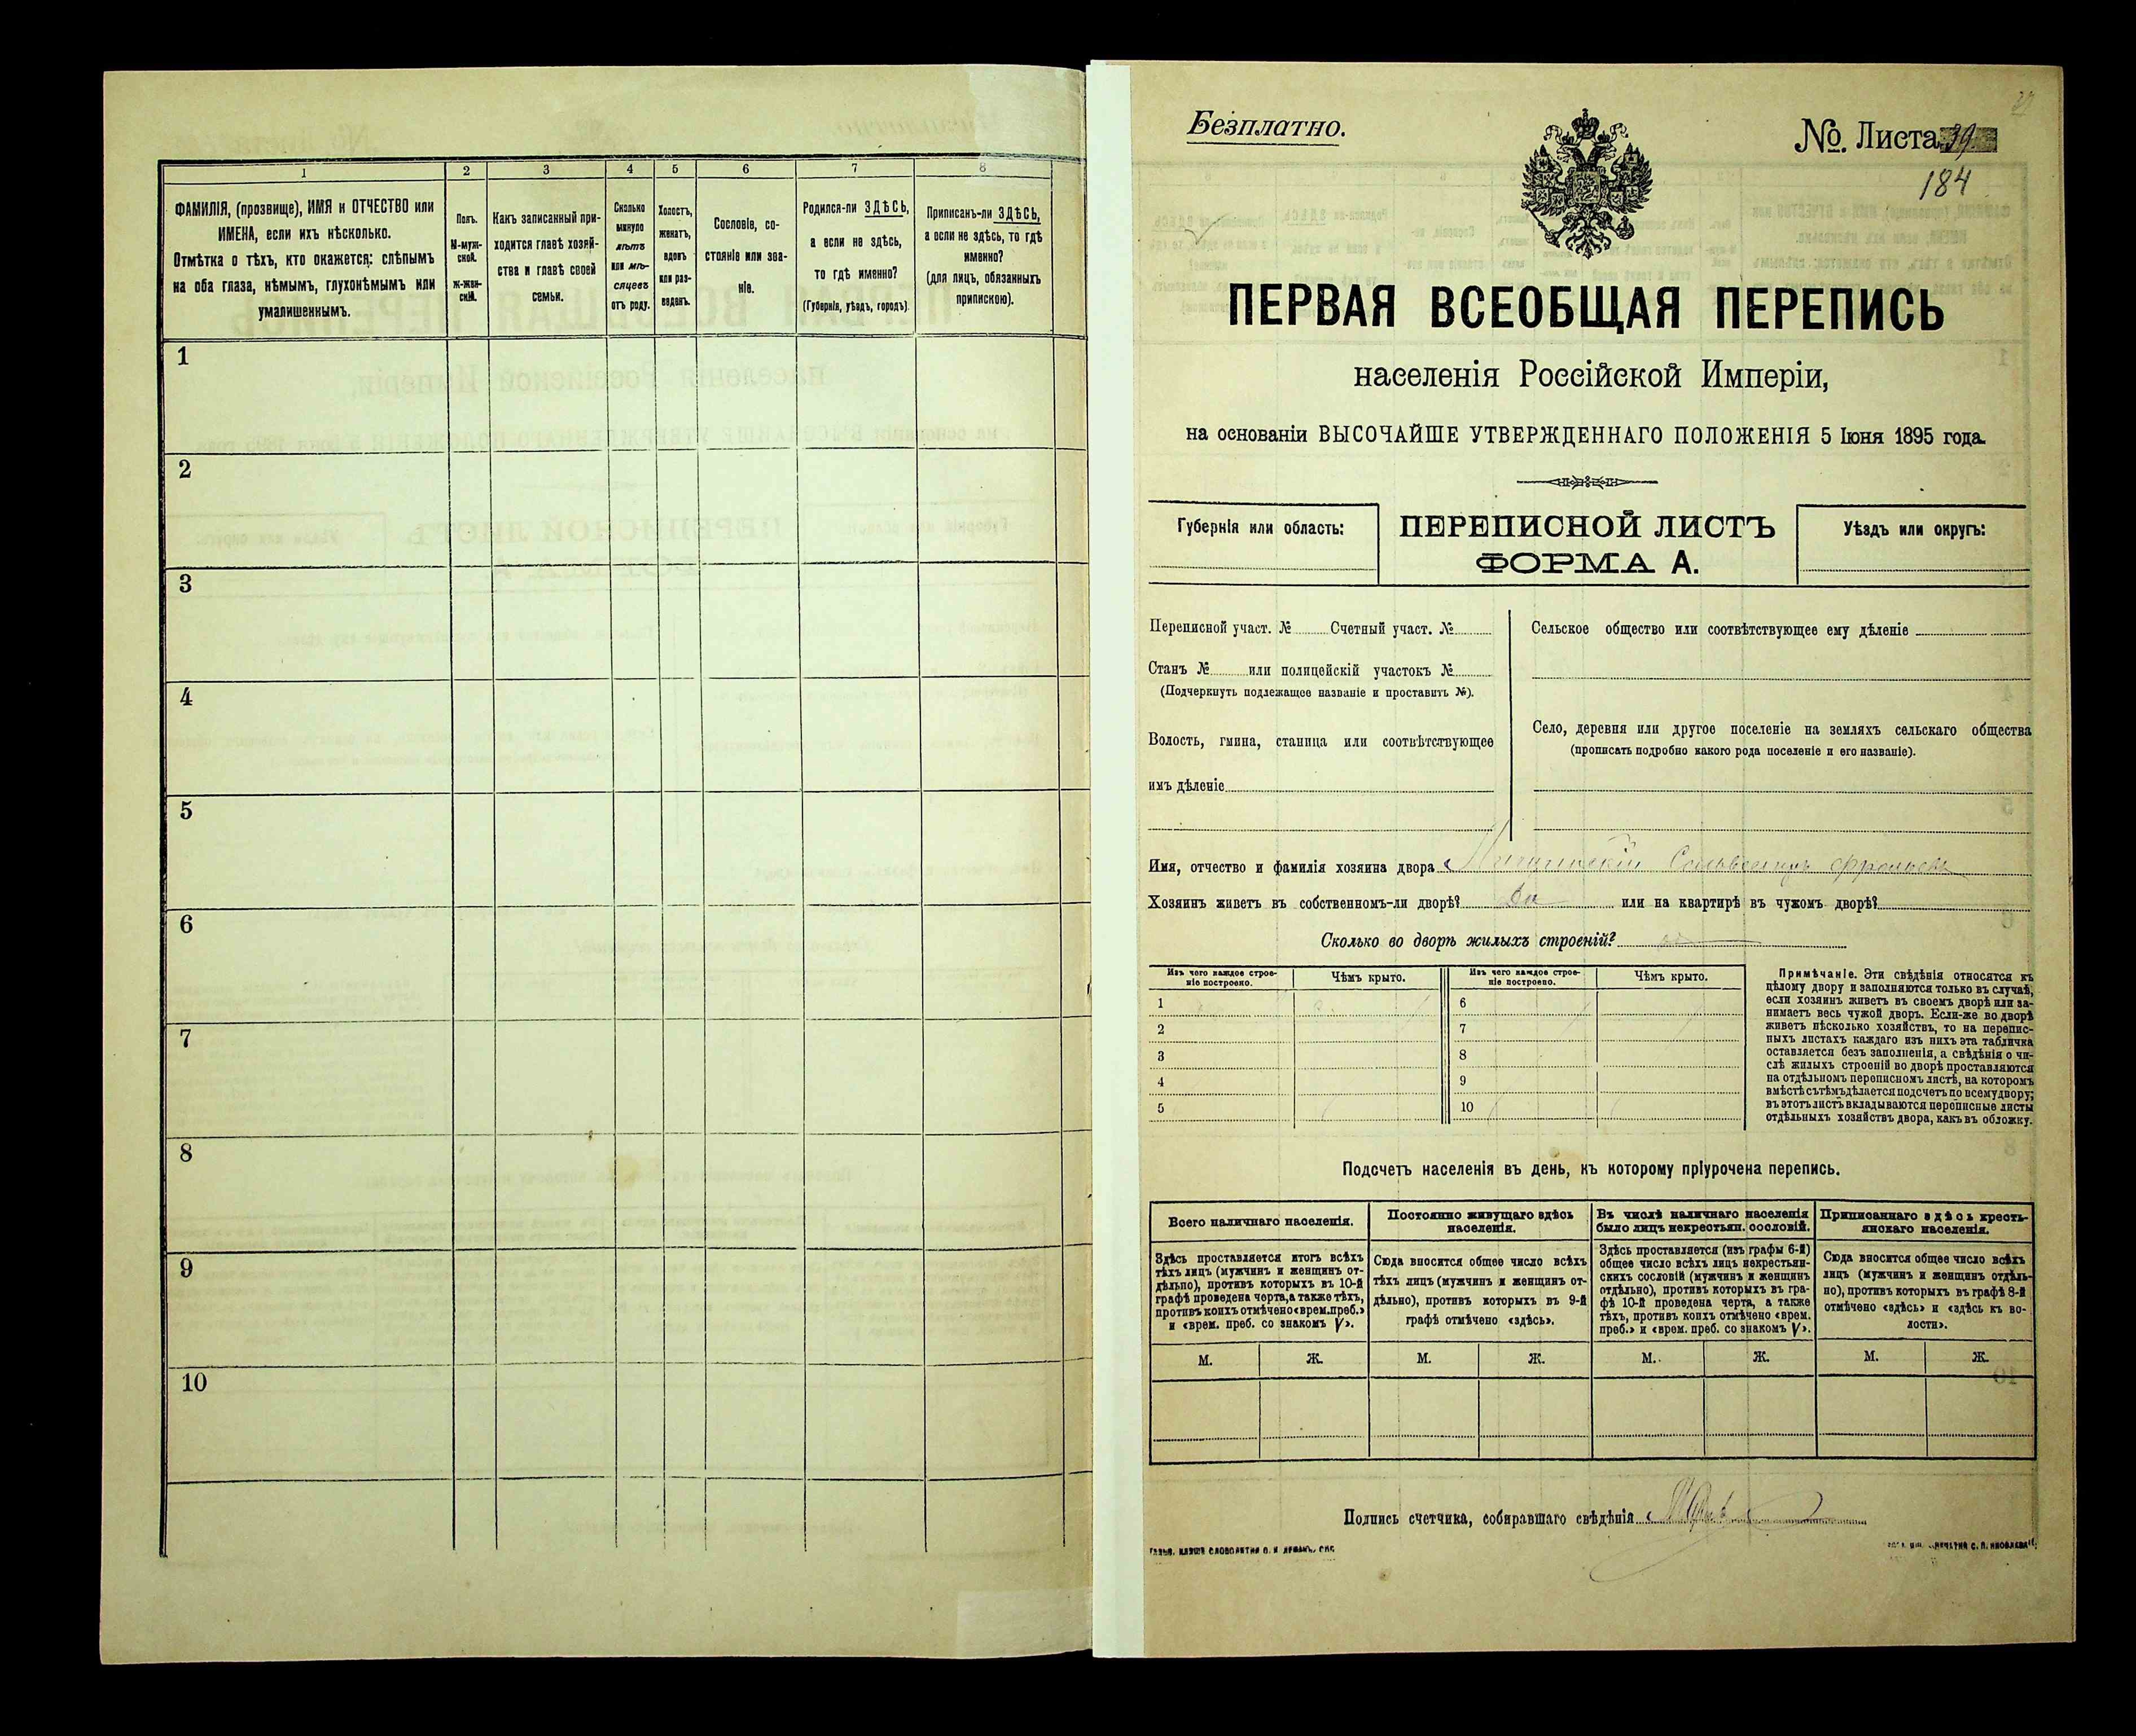 1
2
3
4
5
6
7
8
ФАМИЛІЯ, (прозвище), ИМЯ и ОТЧЕСТВО или
ИМЕНА, если ихъ нѣсколько.
Отмѣтка о тѣхъ, кто окажется: слѣпымъ
на оба глаза, нѣмымъ, глухонѣмымъ или
умалишеннымъ.
Полъ.
М-муж-
ской.
Ж-жен-
скій.
Какъ записанный при-
ходится главѣ хозяй-
ства и главѣ своей
семьи.
Сколько
минуло
лѣтъ
или мѣ-
сяцевъ
отъ роду.
Холостъ,
женатъ,
вдовъ
или раз-
веденъ.
Сословіе, со-
стояніе или зва-
ніе.
Родился-ли ЗДѢСЬ,
а если не здѣсь,
то гдѣ именно?
(Губернія, уѣздъ, городъ).
Приписанъ-ли ЗДѢСЬ,
а если не здѣсь, то гдѣ
именно?
(для лицъ, обязанныхъ
припискою).
1
2
3
4
5
6
7
8
9
10
Безплатно.
№. Листа 39
184
ПЕРВАЯ ВСЕОБЩАЯ ПЕРЕПИСЬ
населенія Россійской Имперіи,
на основаніи ВЫСОЧАЙШЕ УТВЕРЖДЕННАГО ПОЛОЖЕНІЯ 5 Іюня 1895 года.
Губернія или область:
ПЕРЕПИСНОЙ ЛИСТЪ
ФОРМА А.
Уѣздъ или округъ:
Переписной участ. № Счетный участ. №
Станъ № или полицейскій участокъ №
(Подчеркнуть подлежащее названіе и проставить №).
Волость, гмина, станица или соотвѣтствующее
имъ дѣленіе
Сельское общество или соотвѣтствующее ему дѣленіе
Село, деревня или другое поселеніе на земляхъ сельскаго общества
(прописать подробно какого рода поселеніе и его названіе).
Имя, отчество и фамилія хозяина двора
Хозяинъ живетъ въ собственномъ-ли дворѣ? Да или на квартирѣ въ чужомъ дворѣ?
Сколько во дворѣ жилыхъ строеній?
Изъ чего каждое строе-
ніе построено.
Чѣмъ крыто.
Изъ чего каждое строе-
ніе построено.
Чѣмъ крыто.
1
2
3
4
5
6
7
8
9
10
Примѣчаніе. Эти свѣдѣнія относятся къ
цѣлому двору и заполняются только въ случаѣ,
если хозяинъ живетъ въ своемъ дворѣ или за-
нимаетъ весь чужой дворъ. Если-же во дворѣ
живетъ нѣсколько хозяйствъ, то на перепис-
ныхъ листахъ каждаго изъ нихъ эта табличка
оставляется безъ заполненія, а свѣдѣнія о чи-
слѣ жилыхъ строеній во дворѣ проставляются
на отдѣльномъ переписномъ листѣ, на которомъ
вмѣстѣ съ тѣмъ дѣлается подсчетъ по всему двору;
въ этотъ листъ вкладываются переписные листы
отдѣльныхъ хозяйствъ двора, какъ въ обложку.
Подсчетъ населенія въ день, къ которому пріурочена перепись.
Всего наличнаго населенія.
Постоянно живущаго здѣсь
населенія.
Въ числѣ наличнаго населенія
было лицъ некрестьян. сословій.
Приписаннаго здѣсь кресть-
янскаго населенія.
Здѣсь проставляется итогъ всѣхъ
тѣхъ лицъ (мужчинъ и женщинъ от-
дѣльно), противъ которыхъ въ 10-й
графѣ проведена черта, а также тѣхъ,
противъ коихъ отмѣчено «врем. преб.»
и «врем. преб. со знакомъ V».
Сюда вносится общее число всѣхъ
тѣхъ лицъ (мужчинъ и женщинъ от-
дѣльно), противъ которыхъ въ 9-й
графѣ отмѣчено «здѣсь».
Здѣсь проставляется (изъ графы 6-й)
общее число всѣхъ лицъ некрестьян-
скихъ сословій (мужчинъ и женщинъ
отдѣльно), противъ которыхъ въ гра-
фѣ 10-й проведена черта, а также
тѣхъ, противъ коихъ отмѣчено «врем.
преб.» и «врем. преб. со знакомъ V».
Сюда вносится общее число всѣхъ
лицъ (мужчинъ и женщинъ отдѣль-
но), противъ которыхъ въ графѣ 8-й
отмѣчено «здѣсь» и «здѣсь къ во-
лости».
М. Ж. М. Ж. М. Ж. М. Ж.
Подпись счетчика, собиравшаго свѣдѣнія